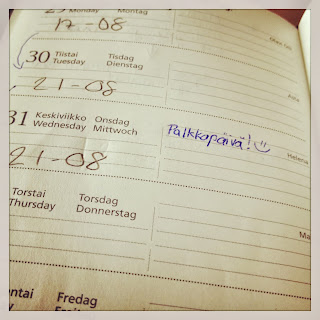 29 Monday Montag
17-08
30 Tiistai Tisdag
Tuesday Dienstag
21-08
31 Keskiviikko Onsdag
Wednesday Mittwoch
Palkkapäivä! Helena
21-08
Torstai Torsdag
Thursday Donnerstag
Fredag